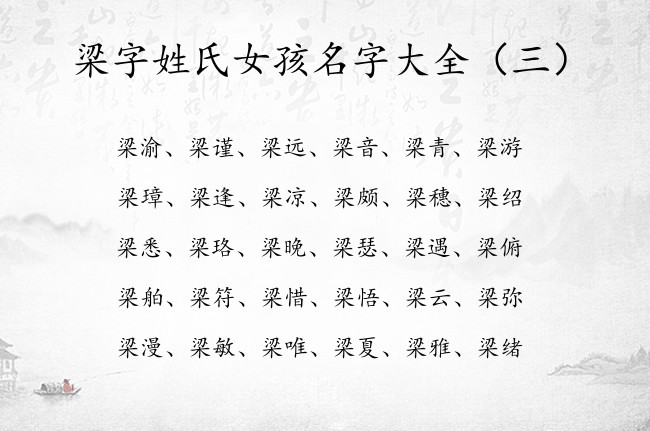 梁字姓氏女孩名字大全（三）
梁渝、梁谨、梁远、梁音、梁青、梁游
梁璋、梁逢、梁凉、梁颇、梁穗、梁绍
梁悉、梁珞、梁晚、梁瑟、梁遇、梁俯
梁舶、梁符、梁惜、梁悟、梁云、梁弥
梁漫、梁敏、梁唯、梁夏、梁雅、梁绪